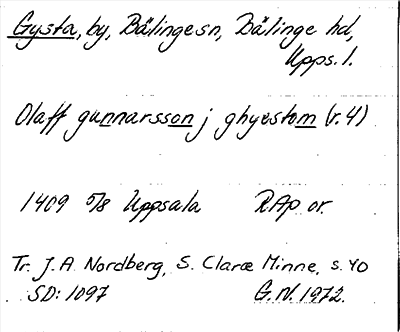 Gysta, by, Bälinge sn, Bälinge hd,
Upps. l.
Olaff gunnarsson j ghyestom (r. 4)
1409 5/8 Uppsala RAp or.
Tr. J. A. Nordberg, S. Claræ Minne, s. 40
SD: 1097 G.N. 1972.